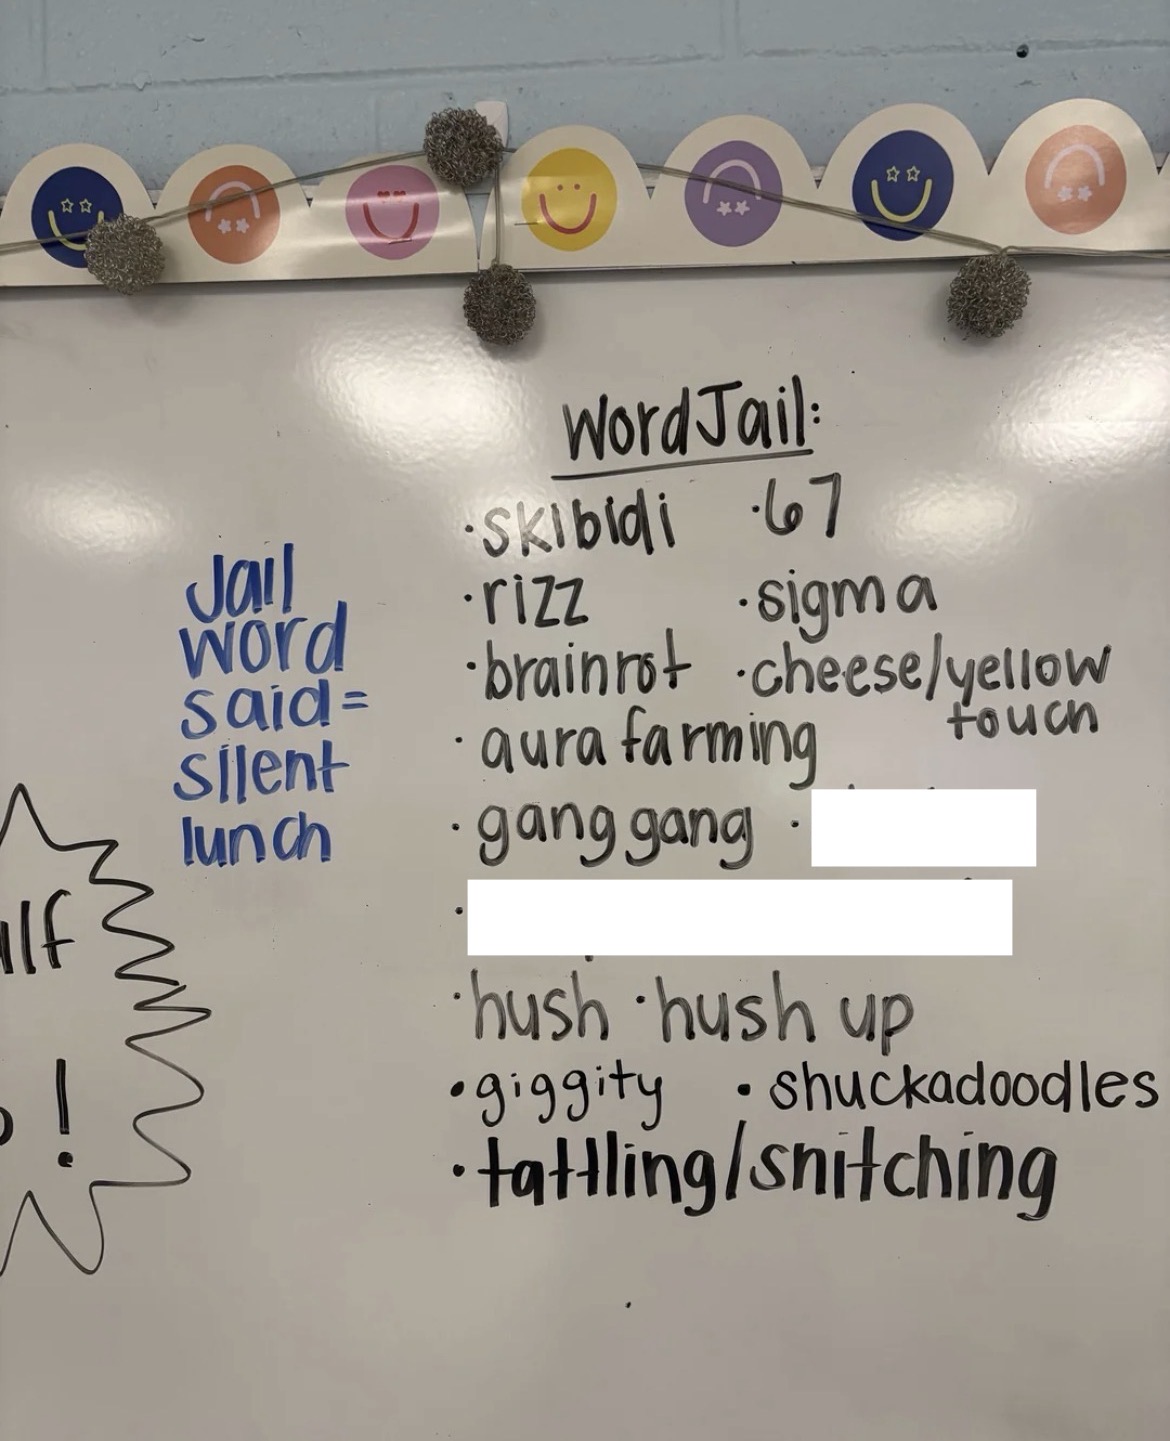 Word Jail:
·skibidi ·67
·rizz ·sigma
·brainrot ·cheese/yellow touch
·aura farming
·gang gang ·
·
·hush ·hush up
·giggity ·shuckadoodles
·tattling/snitching
Jail
word
said=
silent
lunch
!